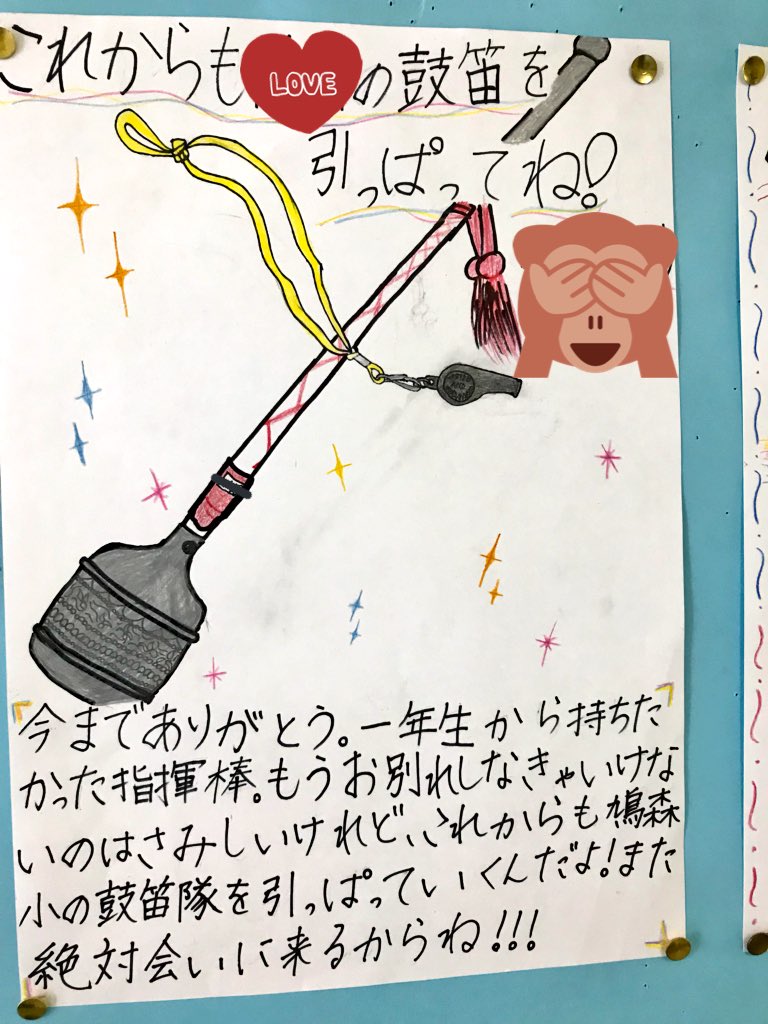 これからも LOVE の鼓笛を
引っぱってね!
今までありがとう。一年生から持ちた
かった指揮棒。もうお別れしなきゃいけな
いのはさみしいけれど、これからも鳩森
小の鼓笛隊を引っぱっていくんだよ!また
絶対会いに来るからね!!!